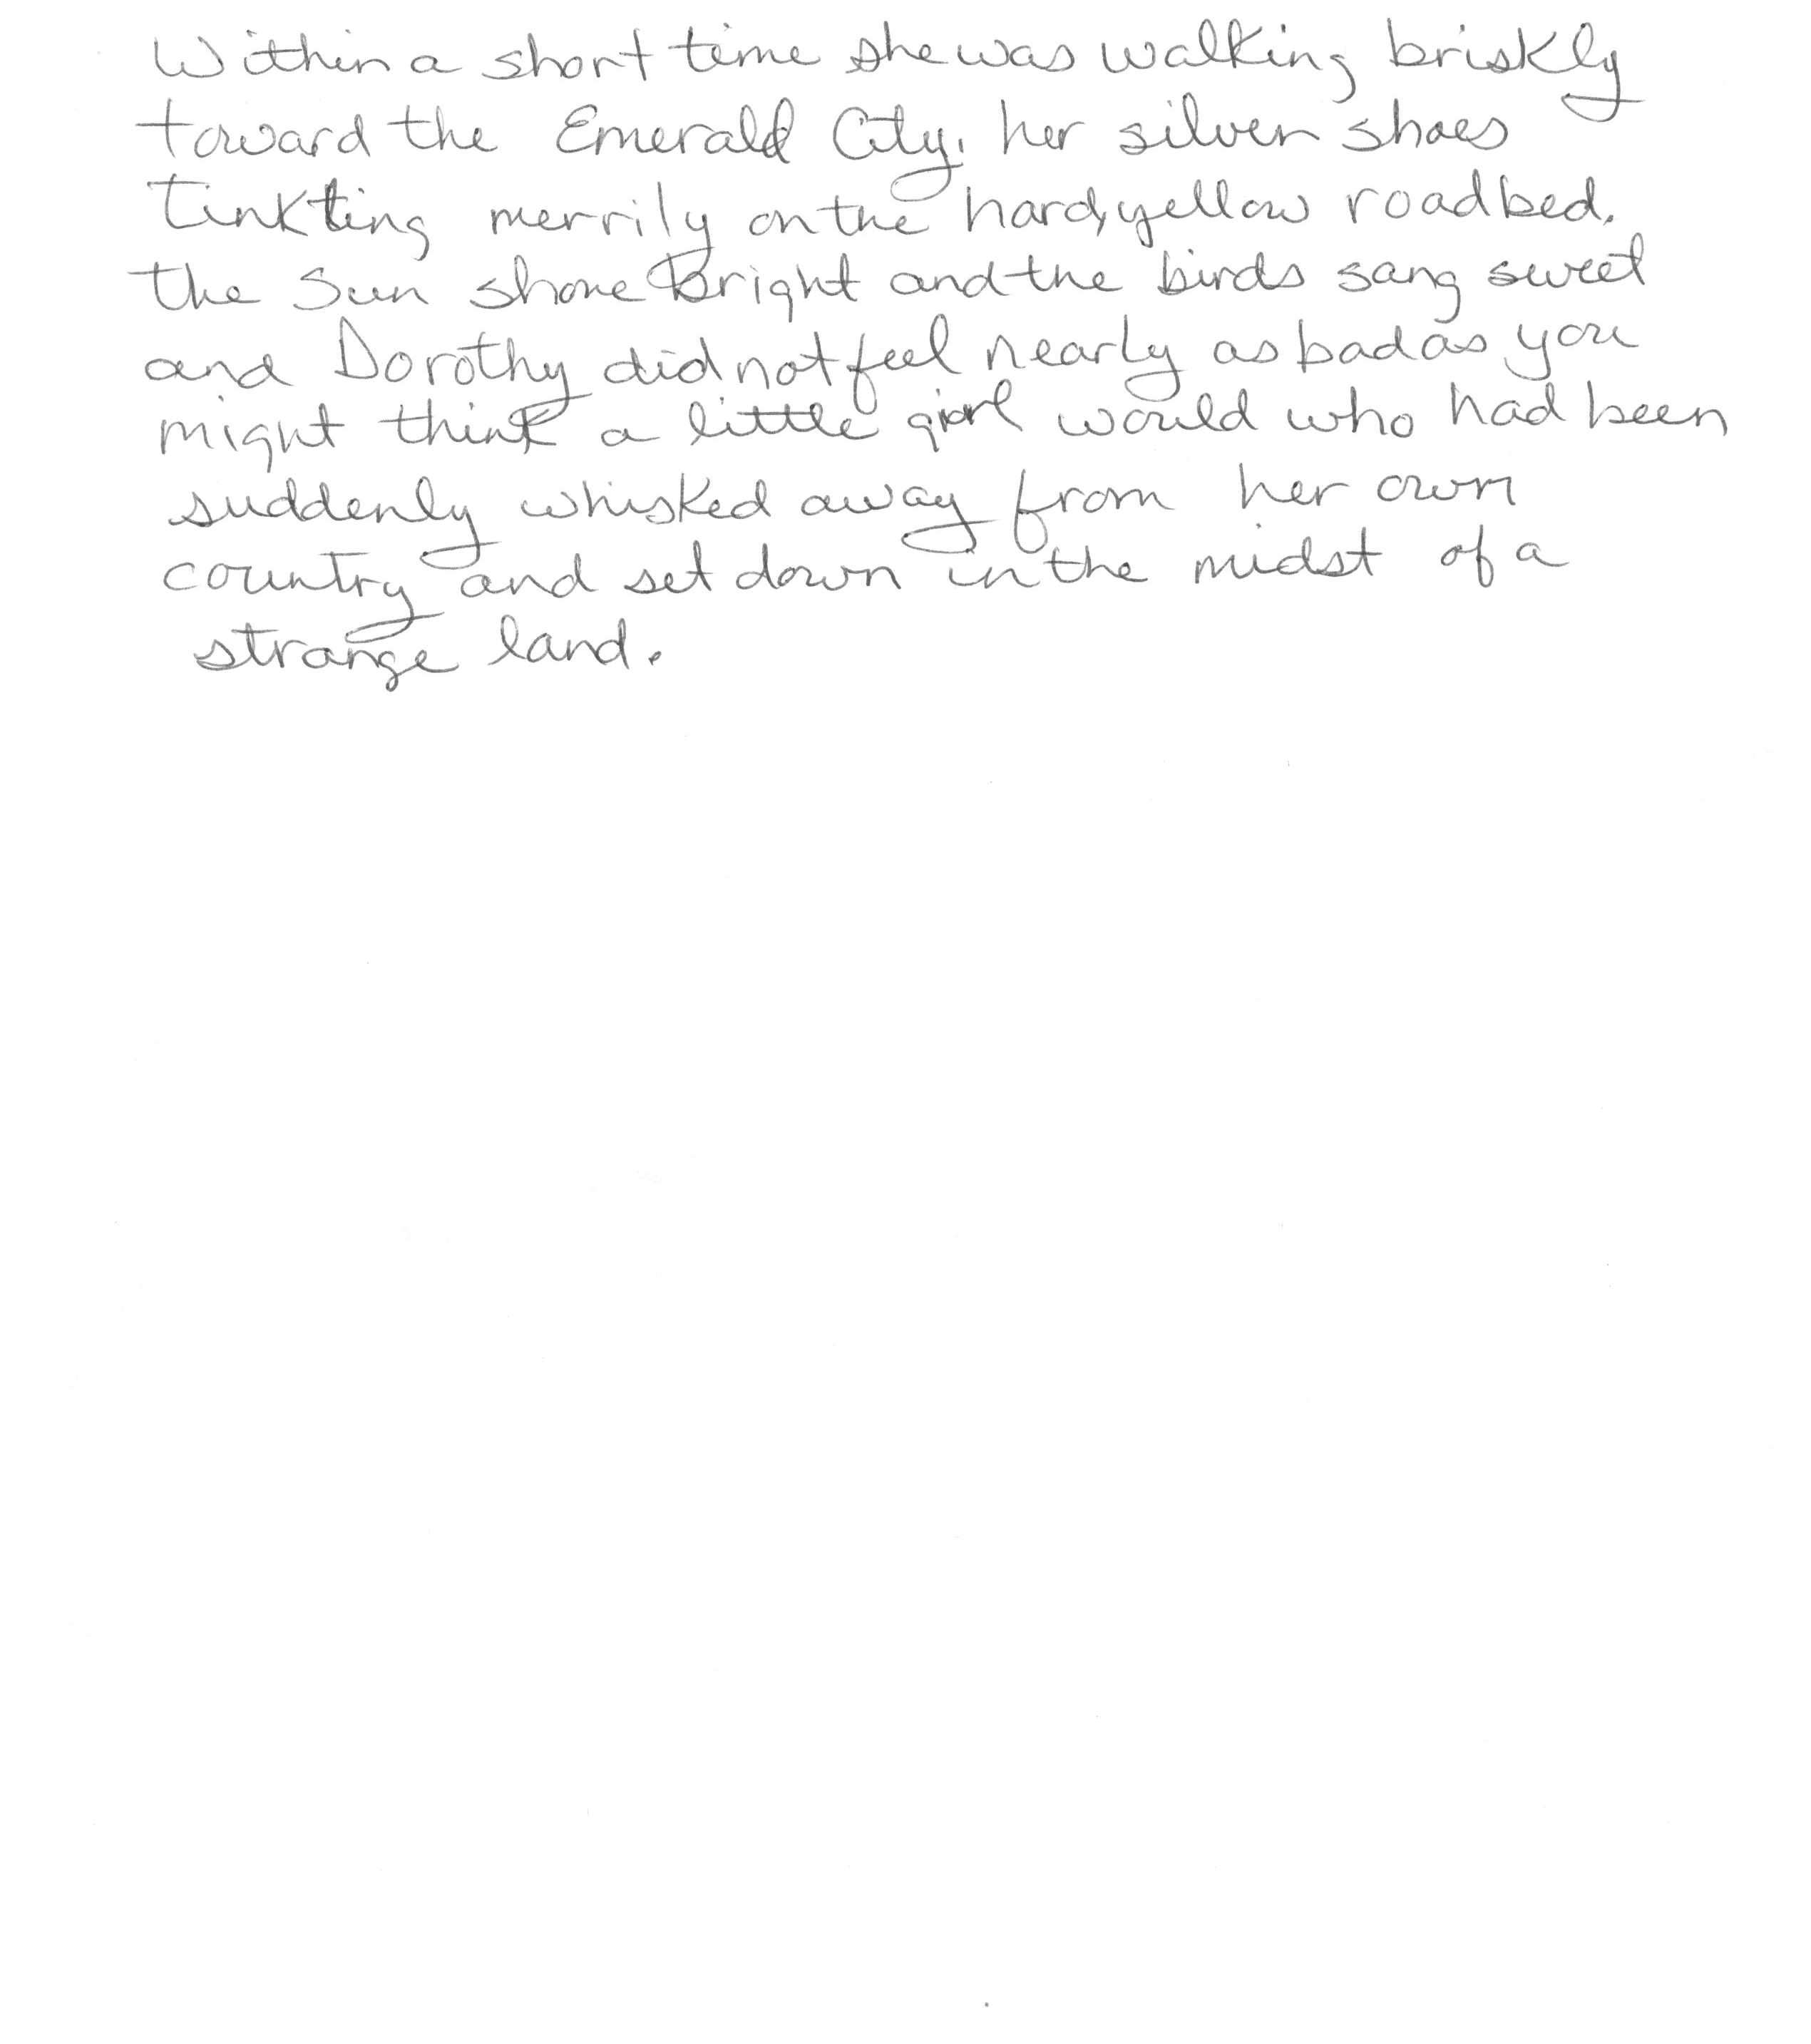 Within a short time she was walking briskly
toward the Emerald City, her silver shoes
Tinkling merrily on the hard, yellow roadbed.
The sun shone bright and the birds sang sweet
and Dorothy did not feel nearly as bad as you
might think a little girl would who had been
suddenly whisked away from her own
country and set down in the midst of a
strange land.